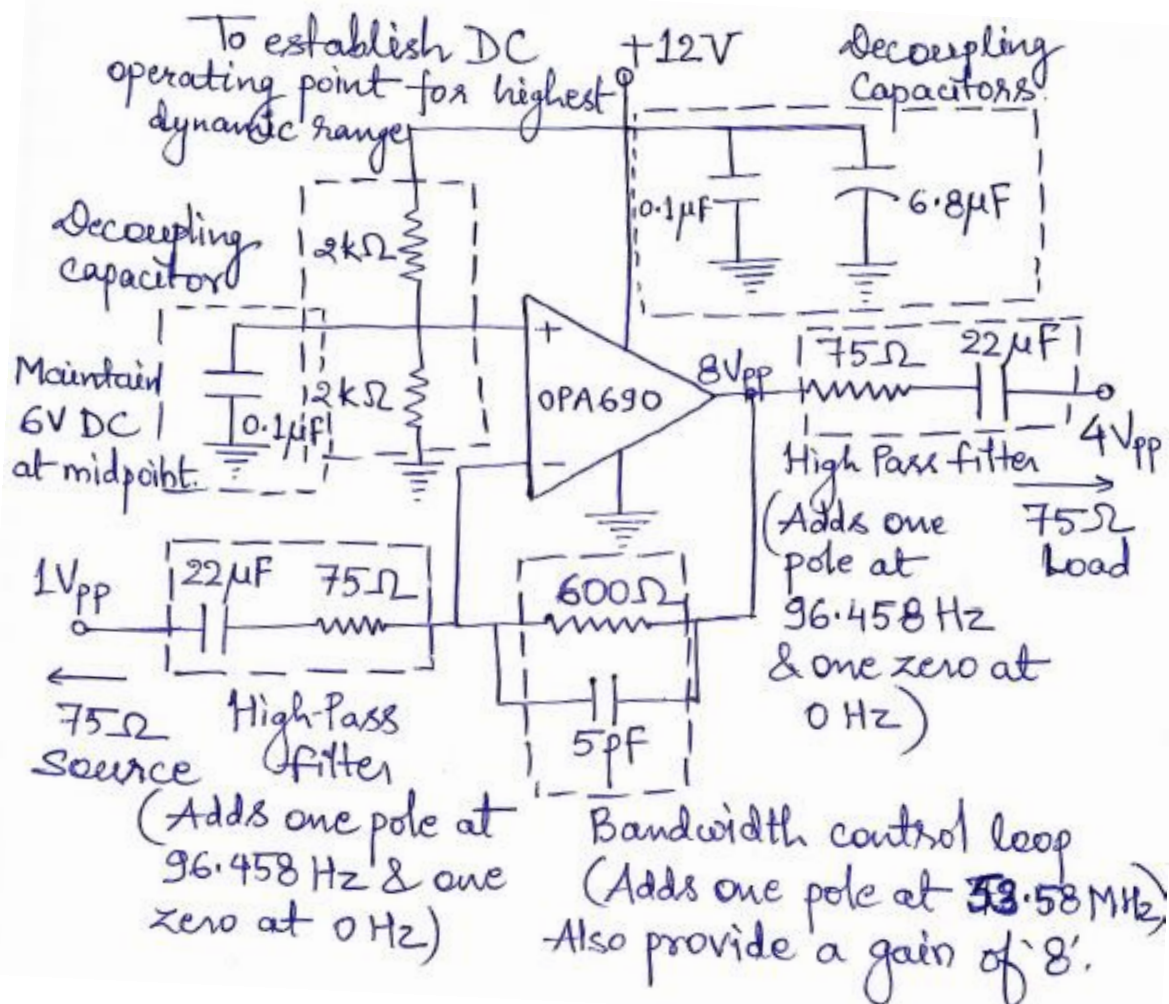 To establish DC
operating point for highest
dynamic range
+12V
Decoupling
Capacitors.
0.1µF
6.8µF
Decoupling
capacitor
2kΩ
Maintain
6V DC
at midpoint.
0.1µF
2kΩ
+
OPA690
-
8Vpp
75Ω
22µF
4Vpp
High Pass filter
(Adds one
pole at
96.458 Hz
& one zero at
0 Hz)
75Ω
Load
1Vpp
22µF
75Ω
600Ω
5pF
75Ω
Source
High-Pass
filter
(Adds one pole at
96.458 Hz & one
zero at 0 Hz)
Bandwidth control loop
(Adds one pole at 53.58 MHz)
Also provide a gain of '8'.